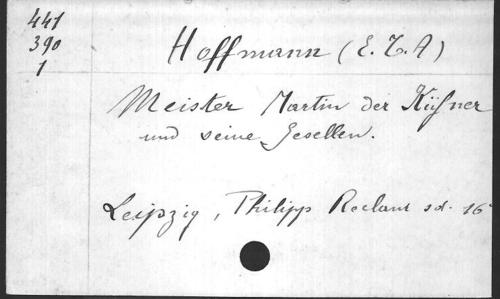 441
390
1
Hoffmann (E. T. A)
Meister Martin der Küfner
und seine Gesellen.
Leipzig, Philipp Reclam sd. 16°